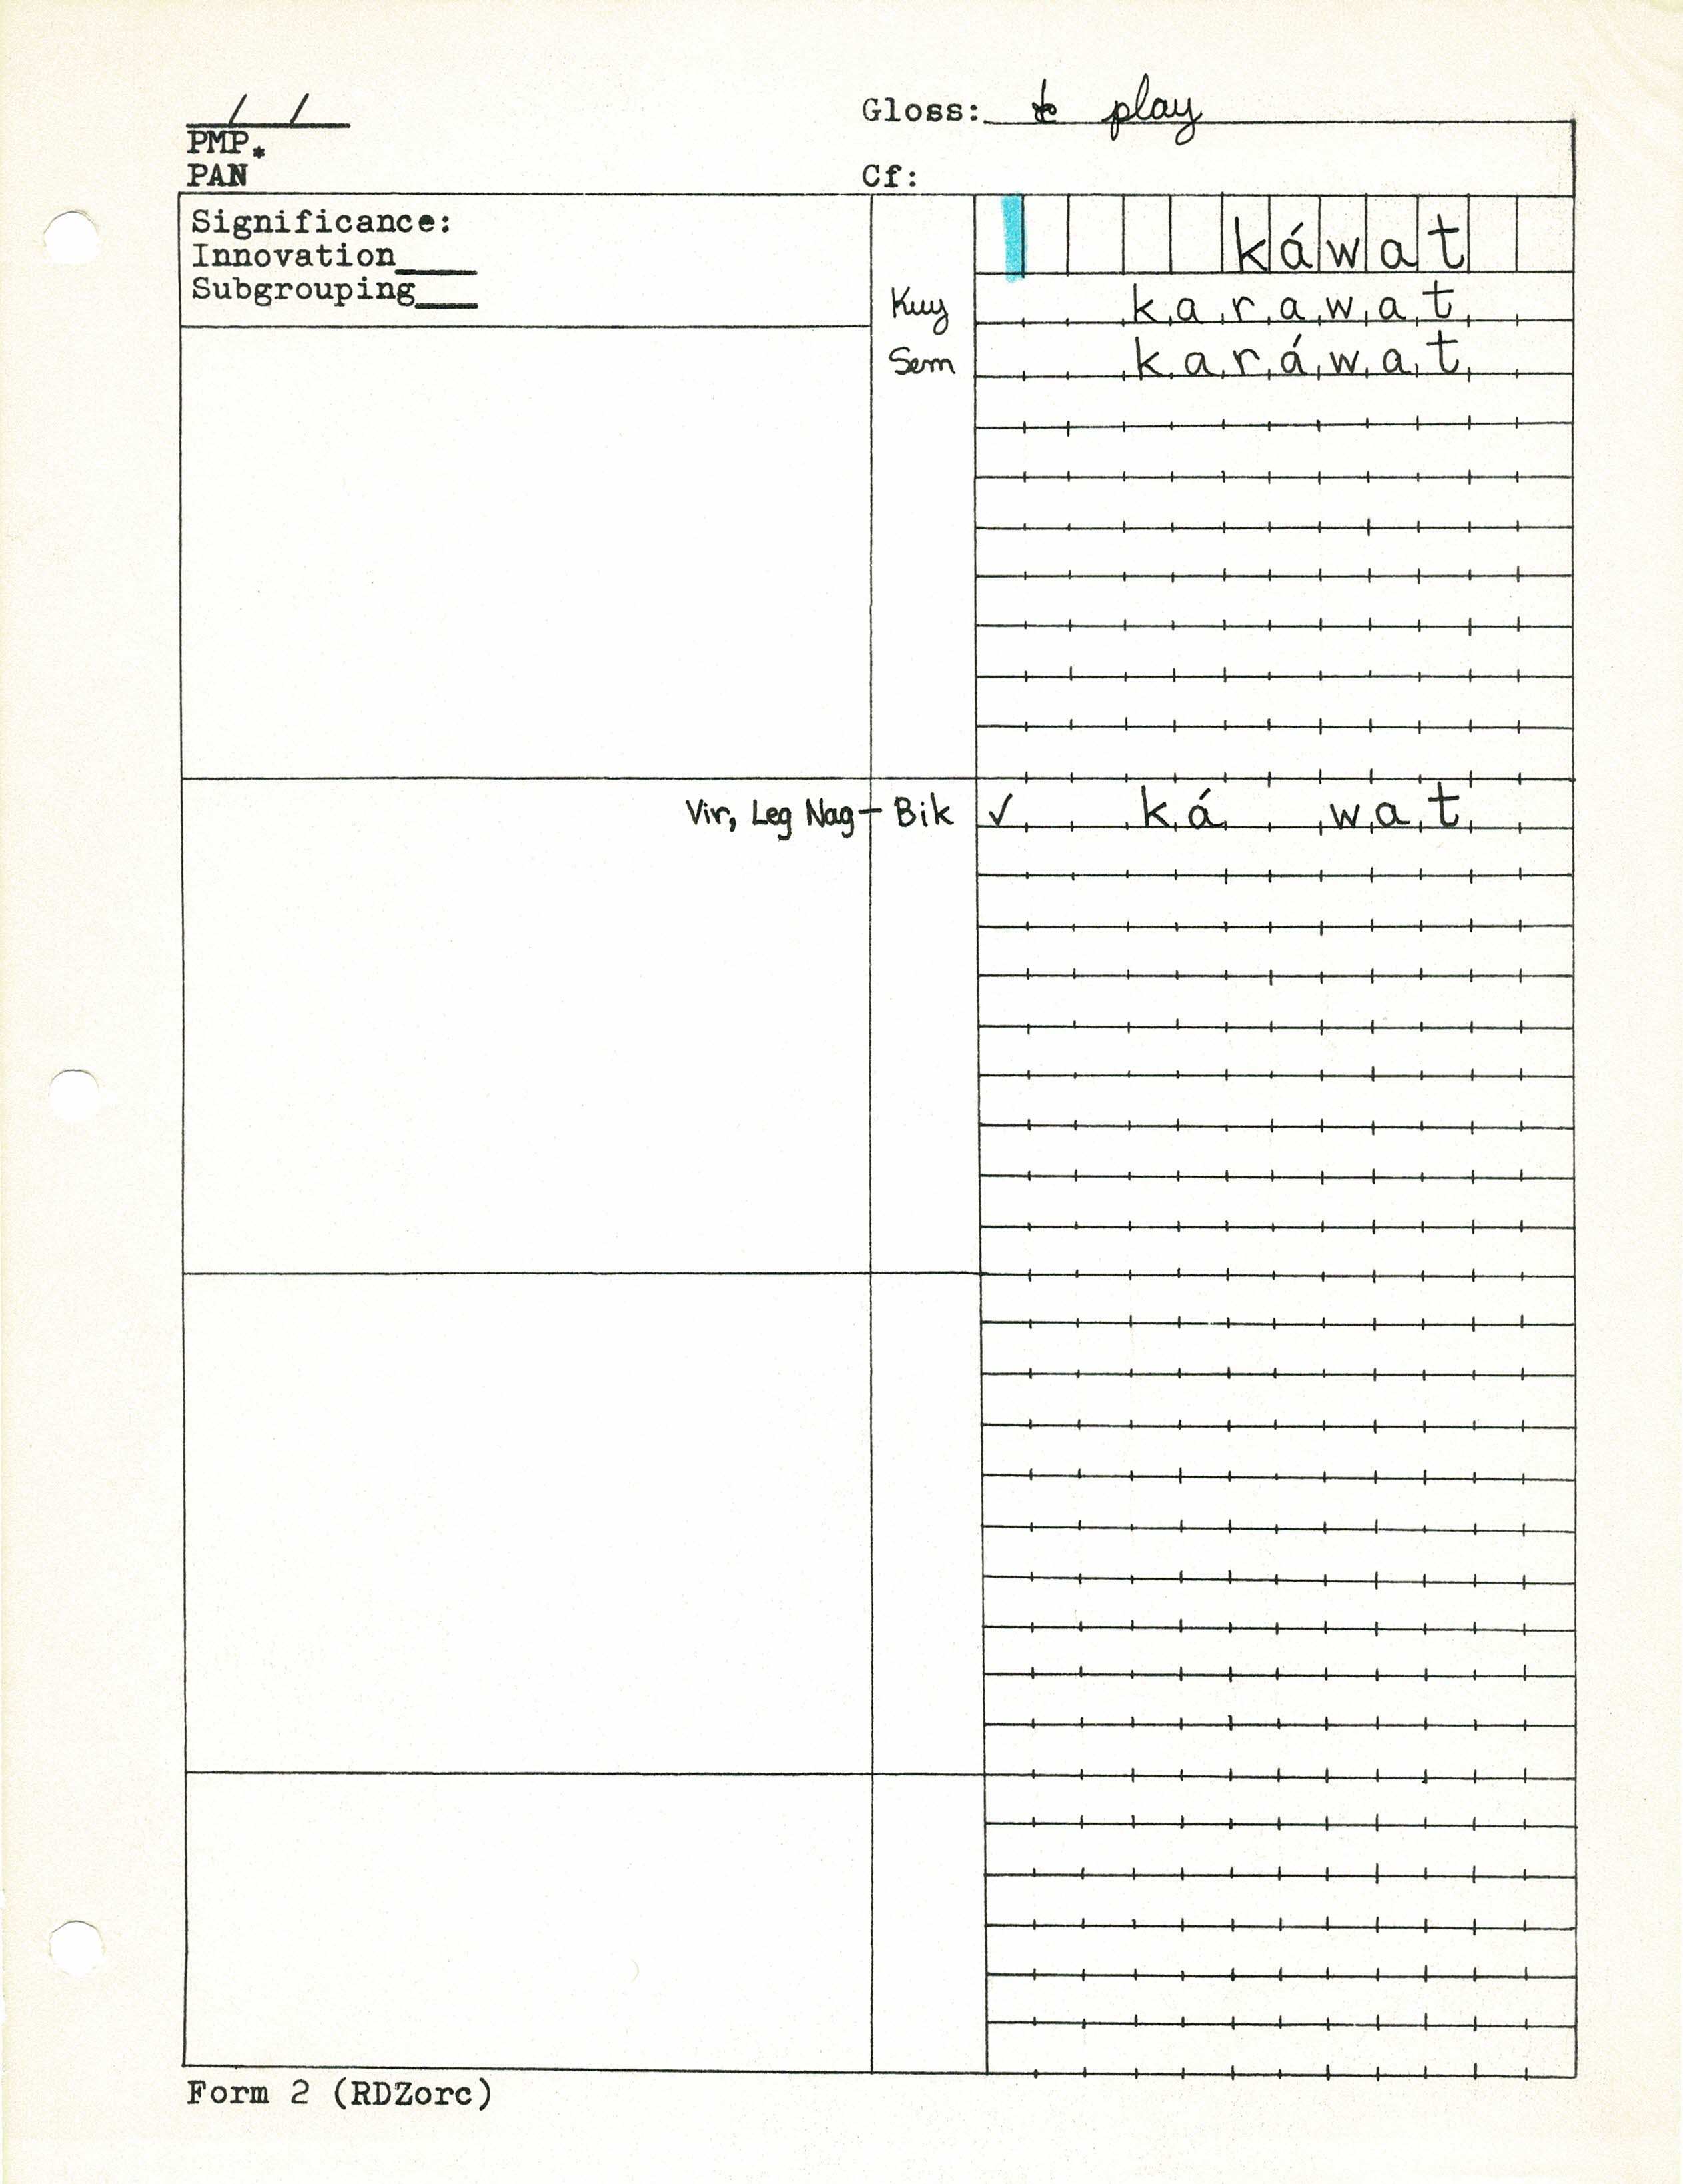 Gloss: to play
PMP*
PAN
Cf:
Significance:
Innovation____
Subgrouping____
káwat
Kuy karawat
Sem karáwat
Vir, Leg Nag - Bik ✓ ká wat
Form 2 (RDZorc)